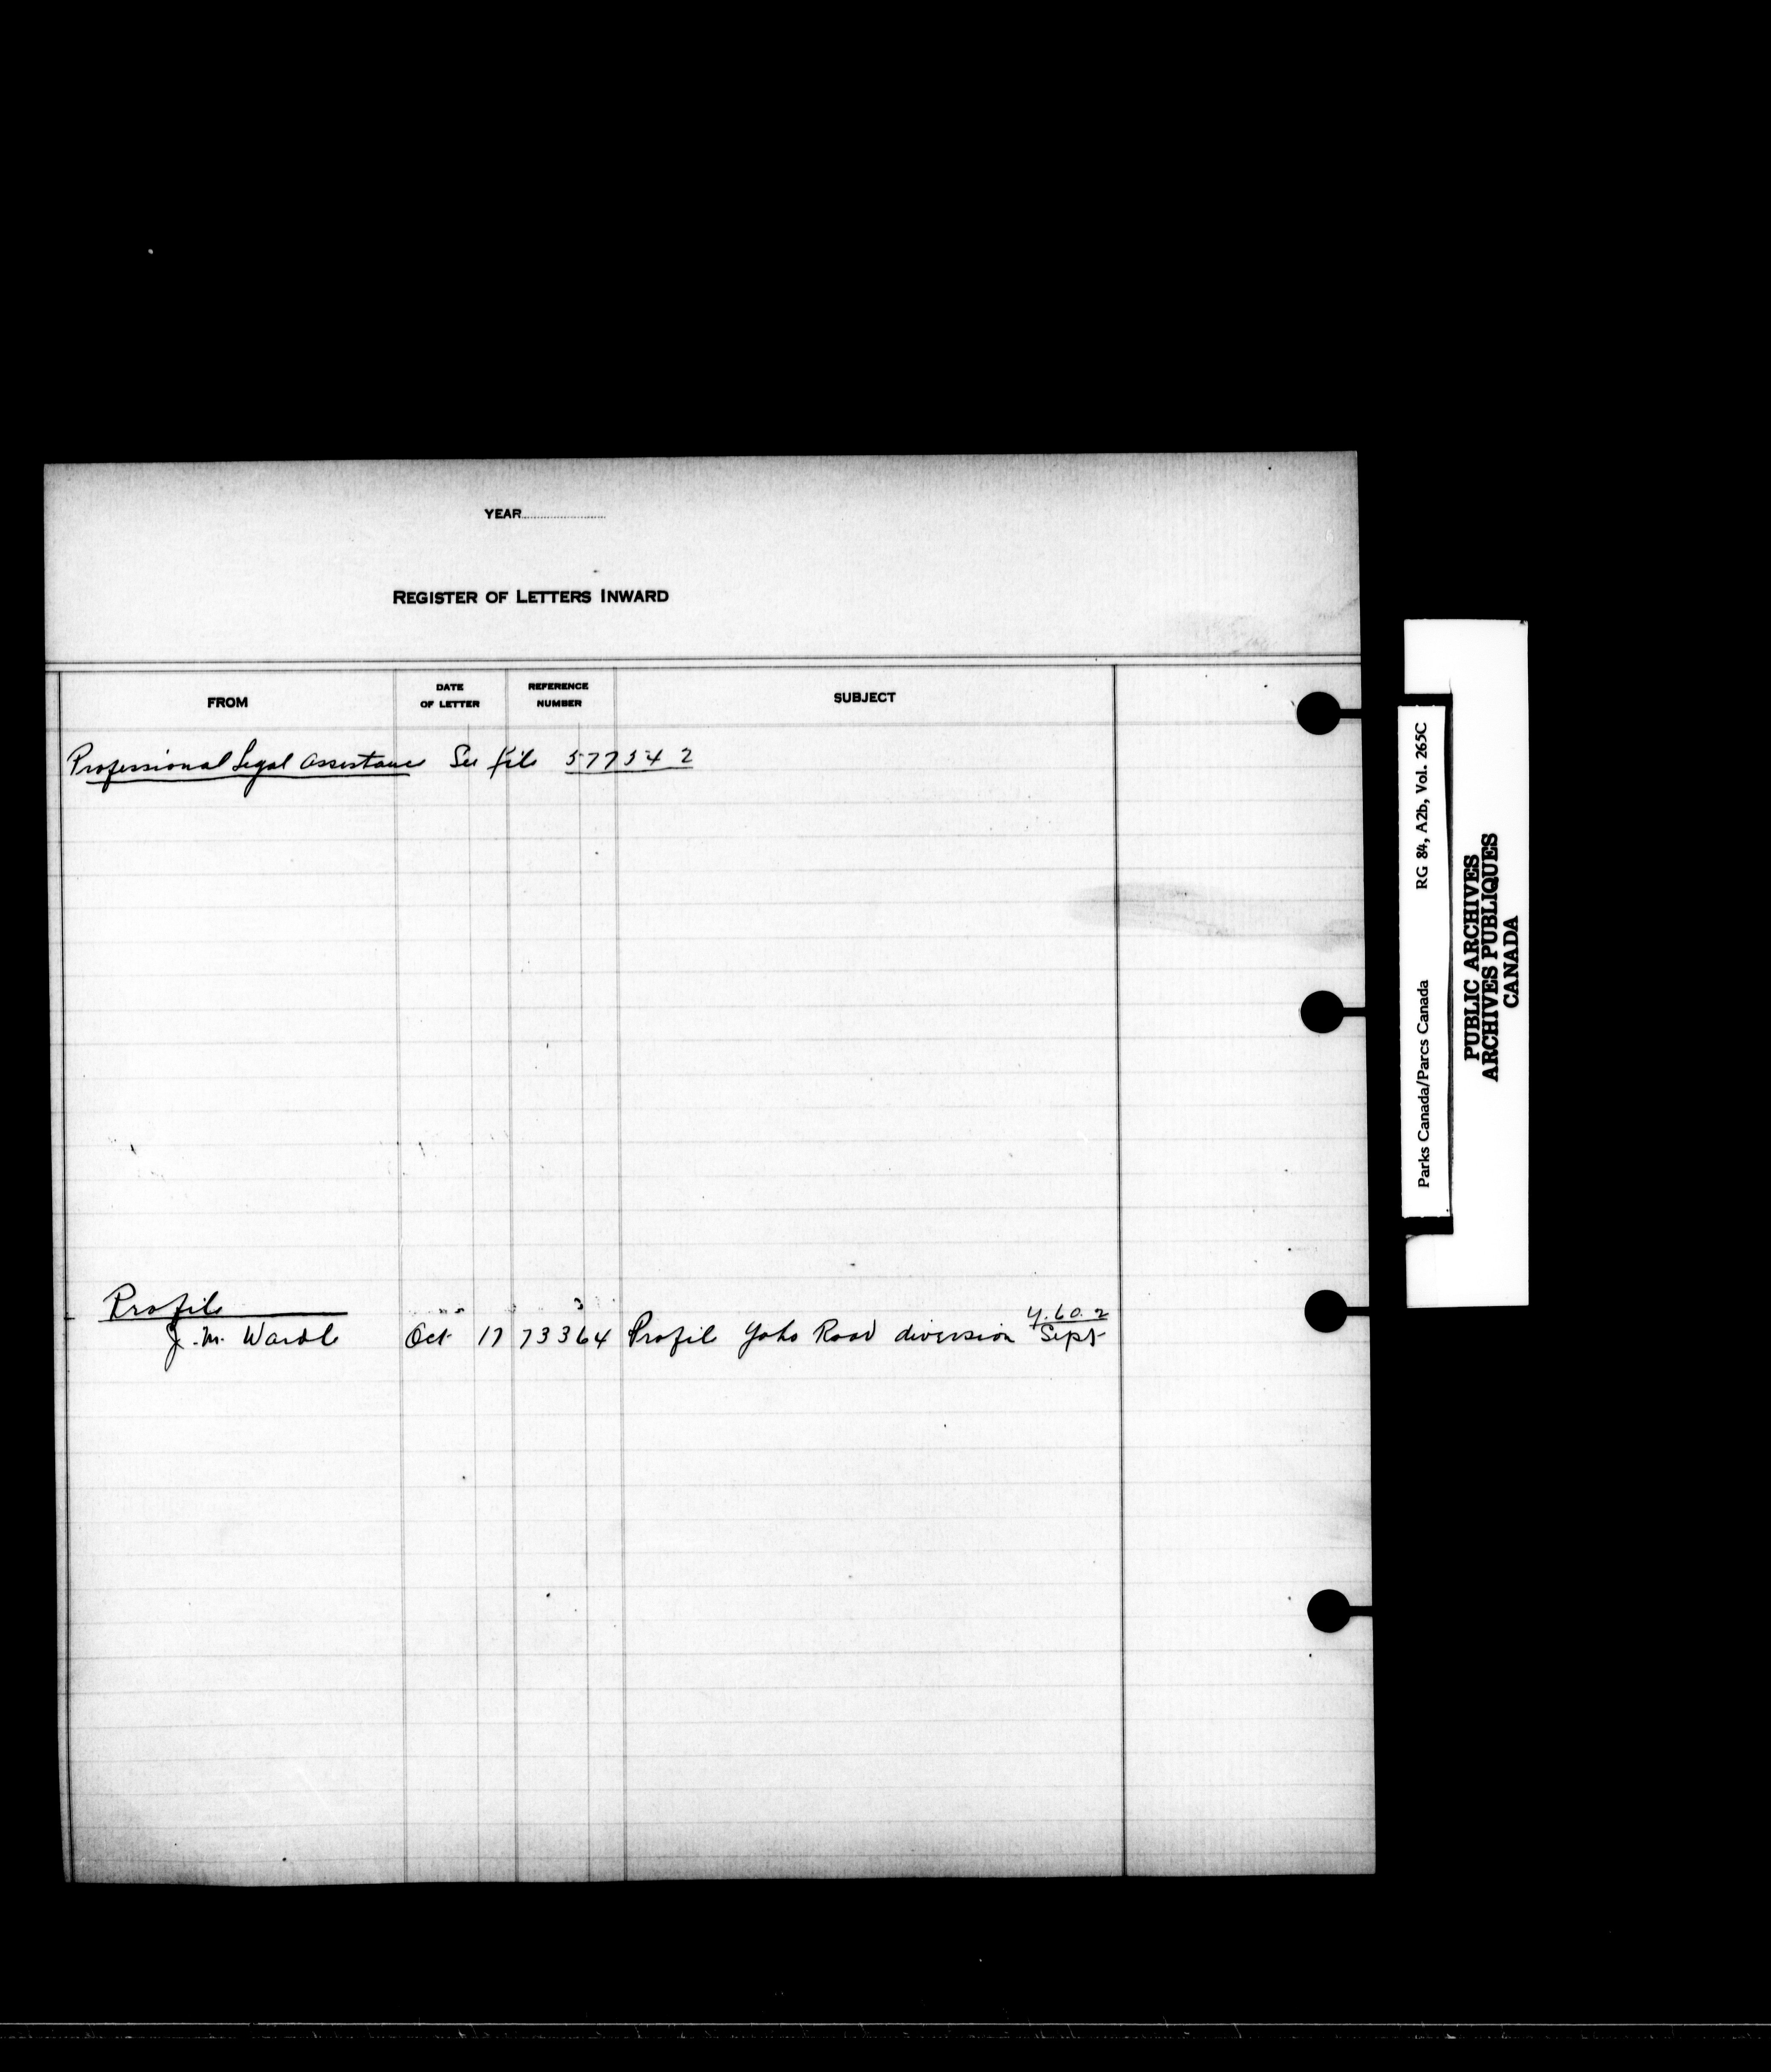 YEAR
REGISTER OF LETTERS INWARD
FROM
DATE
OF LETTER
REFERENCE
NUMBER
SUBJECT
Professional Legal Assistance See file 577542
Profile
J. M. Wardle Oct 17 73364 Profile Yoho Road diversion Y.60.2
Sept
RG 84, A2b, Vol. 265C
Parks Canada/Parcs Canada
PUBLIC ARCHIVES
ARCHIVES PUBLIQUES
CANADA